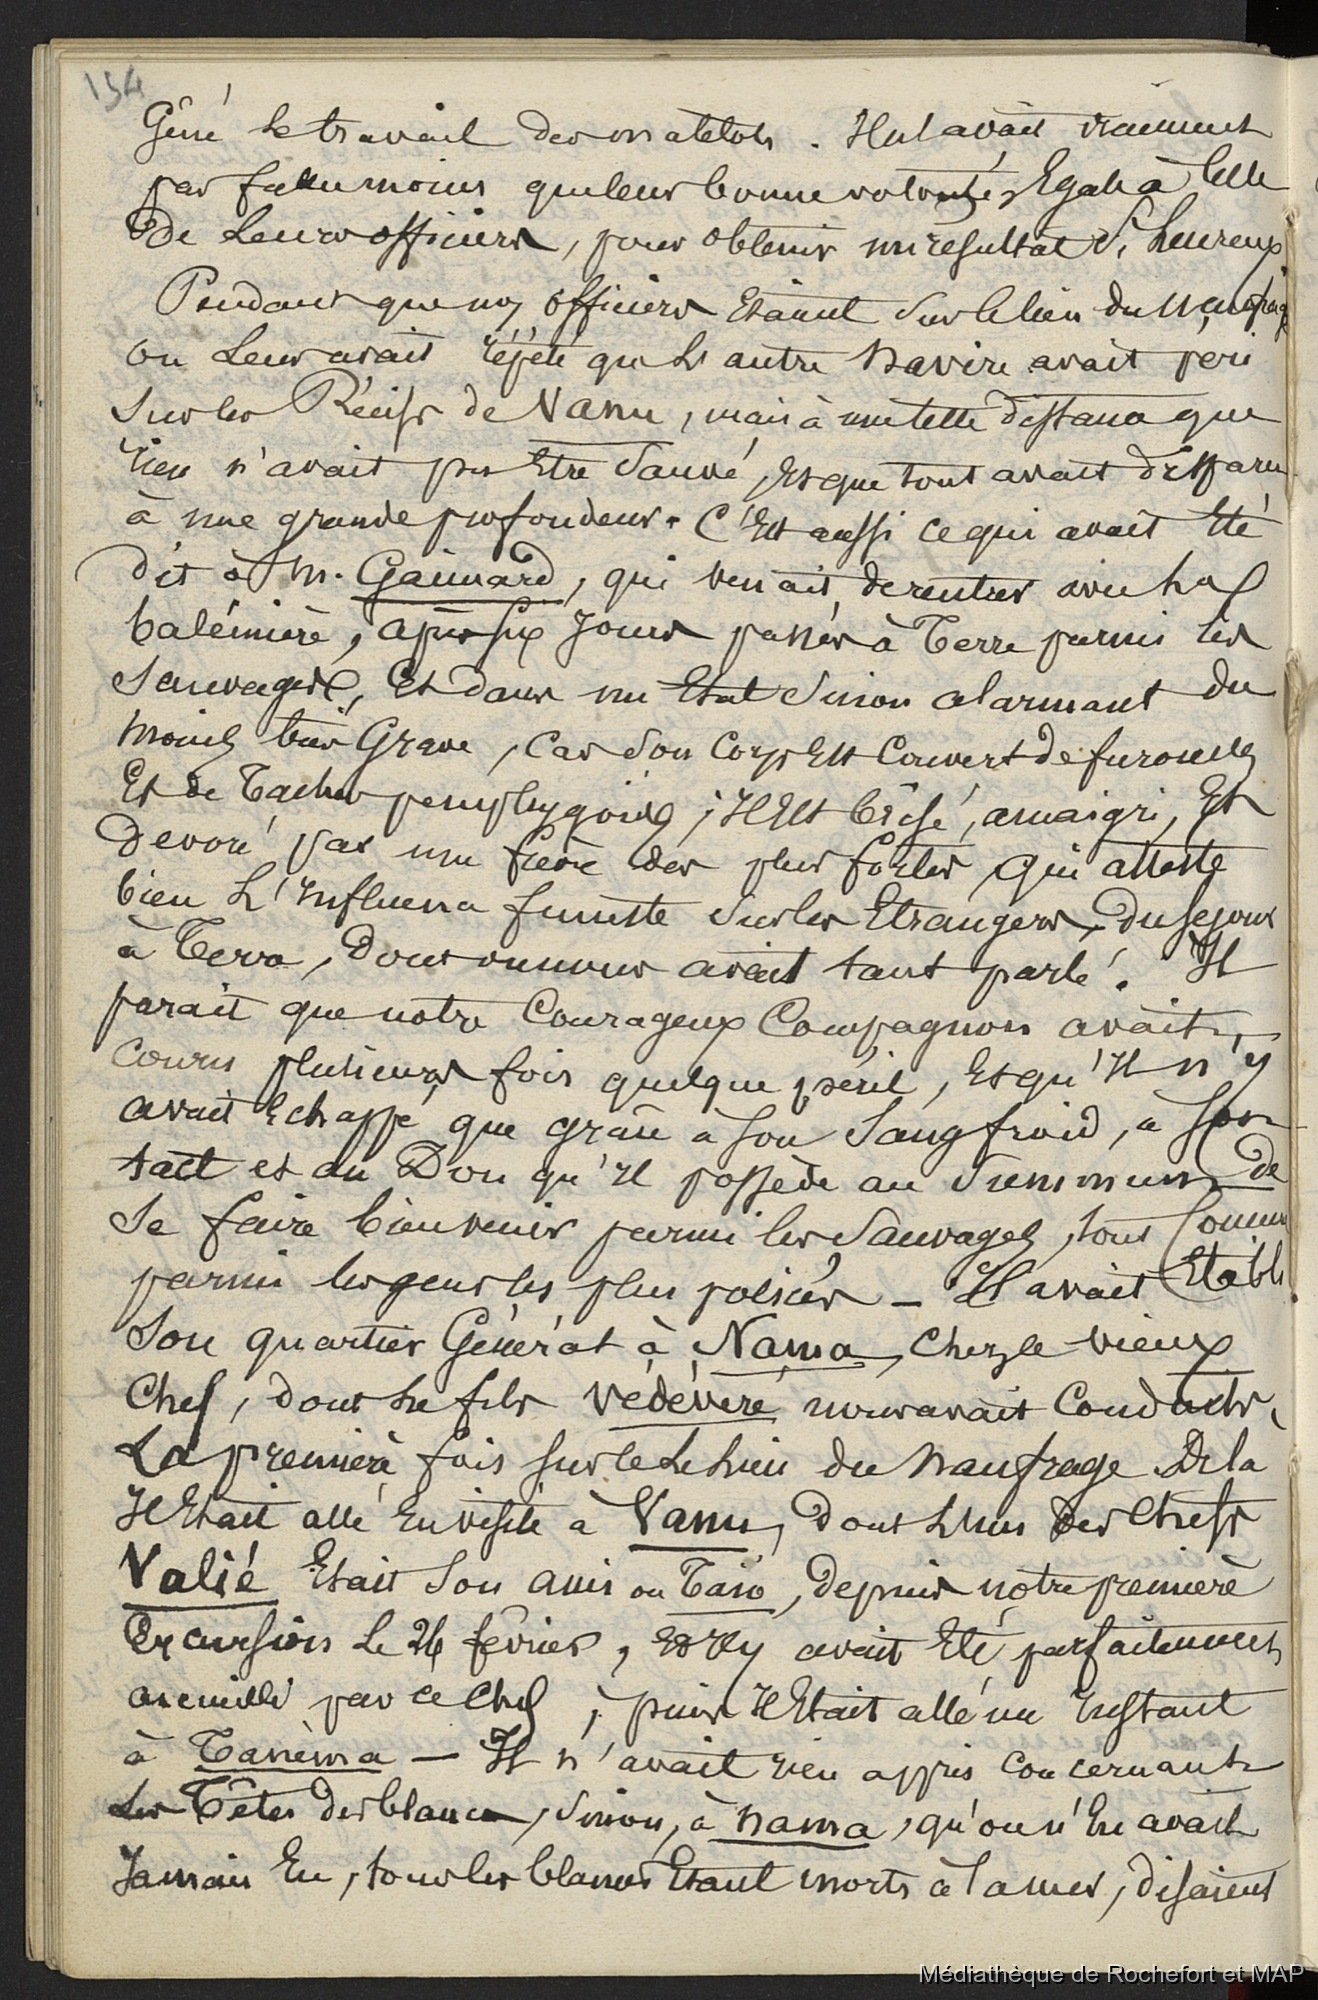 154
Géné le travail des matelots. Il n'avait vraiment
pas fallu moins que leur bonne volonté, Egale à celle
de Leurs officiers, pour obtenir un resultat Si heureux
Pendant que nos officiers Etaient Sur le lieu du Naufrage
on Leur avait répété que L'autre navire avait peri
Sur les Récifs de Vanu, mais à une telle distance que
rien n'avait pu Etre Sauvé, Et que tout avait disparu
à une grande profondeur. C'Est aussi ce qui avait Eté
dit à M. Gaimard, qui venait de rentrer avec la
baleinière, après six Jours passés à Terre parmi les
Sauvages, Et dans un Etat Sinon alarmant du
moins très Grave, Car Son Corps Est Couvert de furoncles
Et de Taches pemphygoïdes; Il Est brisé, amaigri, Et
devoré par une fièvre des plus fortes, qui atteste
bien L'Influence funeste Sur les Etrangers, du séjour
à Terre, dont on nous avait tant parlé. Il
parait que notre Courageux Compagnon avait,
couru plusieurs fois quelque péril, Et qu'Il n'y
avait Echappé que grâce à Son Sang froid, à Son
tact et au Don qu'Il possède au Summum de
Se faire bien venir parmi les Sauvages, tout Comme
parmi les gens les plus policés - Il avait Etabli
Son quartier Général à Nama, Chez le vieux
Chef, dont le fils Védévéré nous avait Conduits,
La première fois sur le Lieu du Naufrage De là
Il Etait allé En visite à Vanu, dont L'un des Chefs
Valié Etait Son ami ou Taïo, depuis notre première
Excursion le 26 février, Et Il y avait Eté parfaitement
accueilli par ce Chef; puis Il Etait allé un Instant
à Tanéma - Il n'avait rien appris concernant
Les Têtes des blancs, Sinon, à Nama, qu'on n'En avait
Jamais Eu, tous les blancs Etant morts à la mer, disaient
Médiathèque de Rochefort et MAP